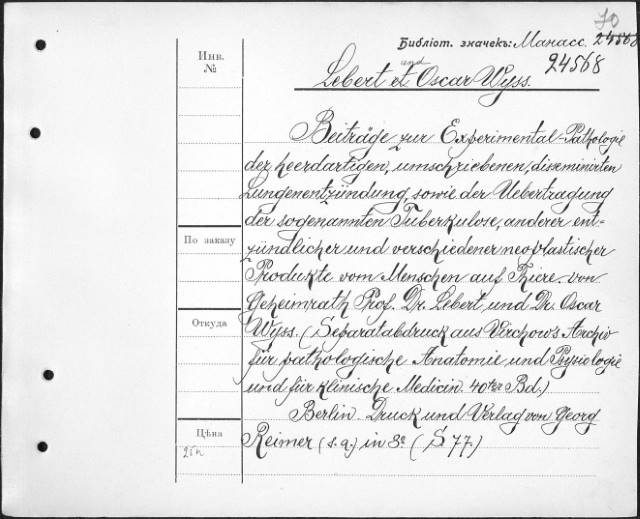 70
Библіот. значекъ: Манасс. 24568
24568
Инв.
№
and
Lebert et Oscar Wyss.
Beiträge zur Experimental-Pathologie
der heerdartigen, umschriebenen, diseminirten
Lungenentzündung, sowie der Uebertragung
der sogenannten Tuberkulose, anderer ent-
zündlicher und verschiedener neoplastischer
По заказу
Produkte vom Menschen auf Thiere von
Geheimrath Prof. Dr. Lebert, und Dr. Oscar
Откуда
Wyss. (Separatabdruck aus Virchow's Archiv
für pathologische Anatomie und Psyziologie
und für klinische Medicin. 40ter Bd.)
Berlin. Druck und Verlag von Georg
Цѣна
Reimer (s.a.) in 8º (S 77.)